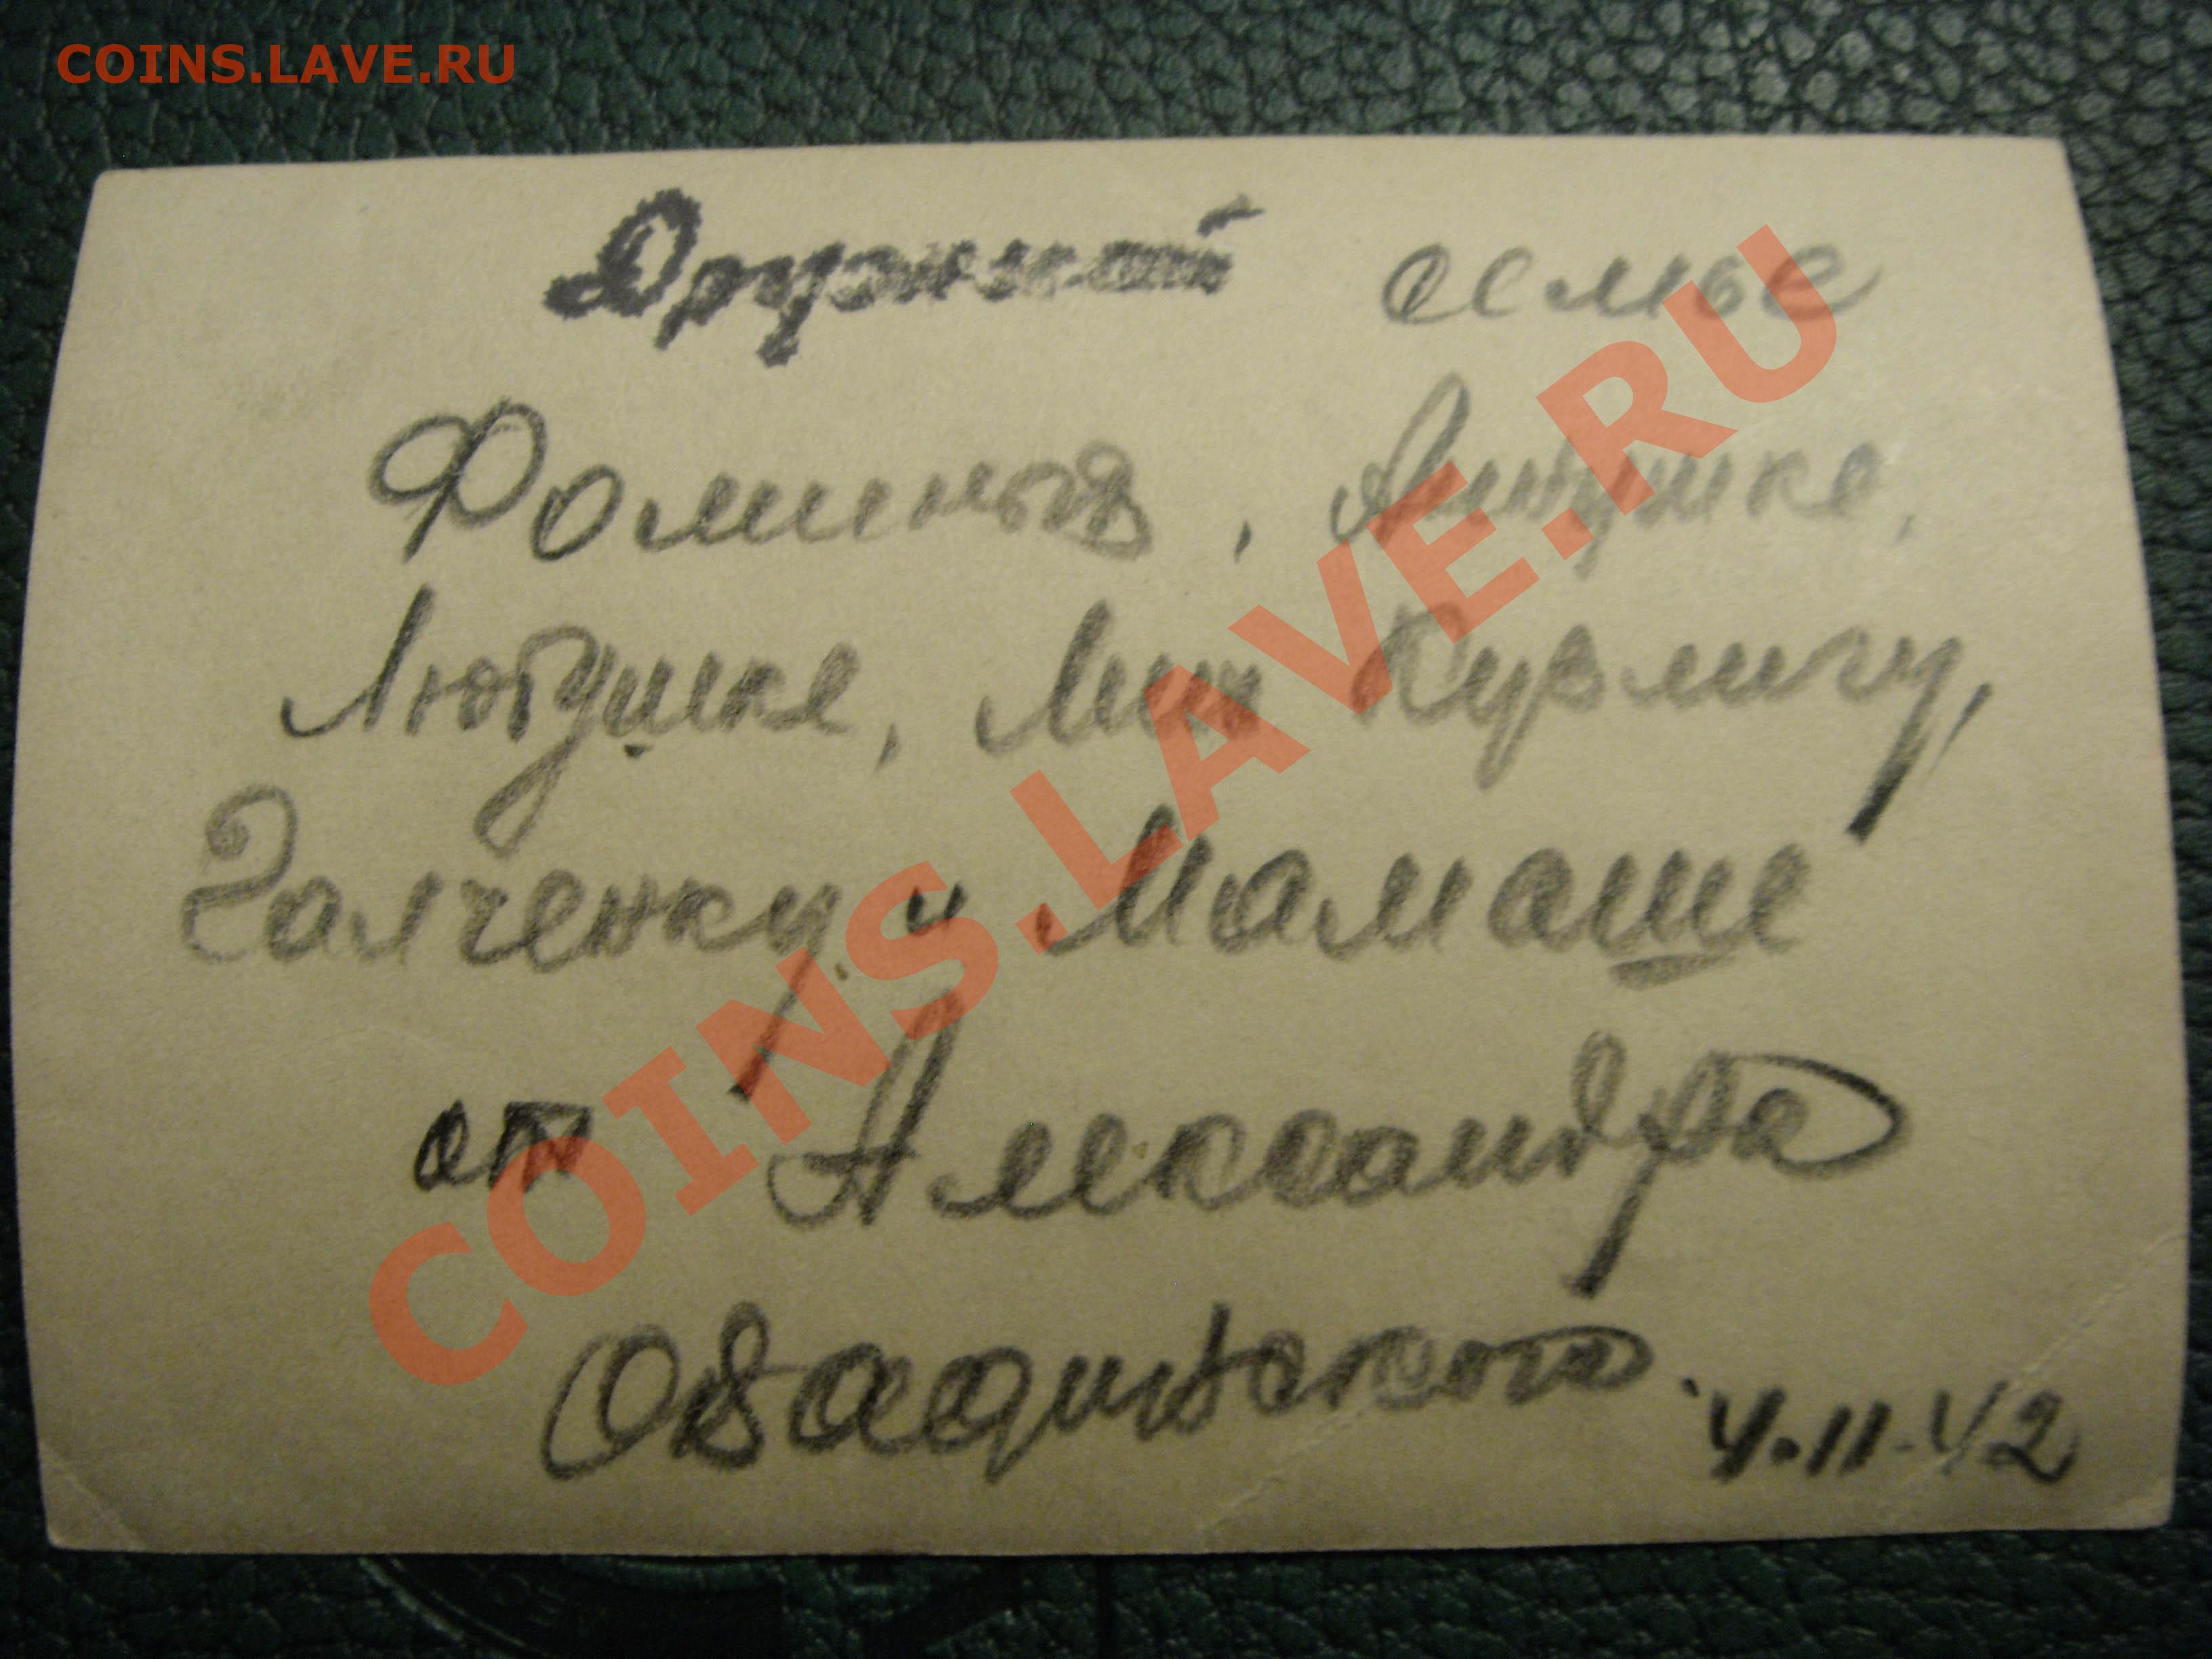 COINS.LAVE.RU
Дружной семье
Фоминых, Аннушке,
Любушке, Мих Кузмичу,
Галченку и Мамаше
от Александра
4.11.42
COINS.LAVE.RU